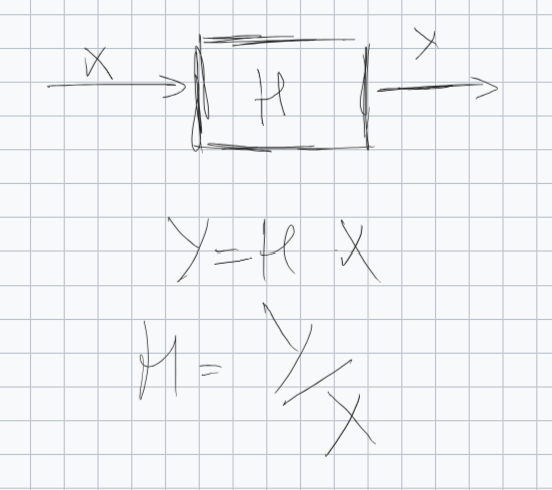 X H Y
Y = H · X
H = Y/X